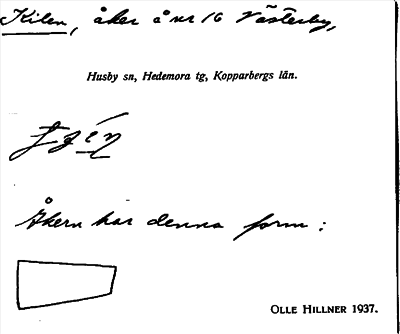 Kilen, åker å nr 16 Västerby,
Husby sn, Hedemora tg, Kopparbergs län.
Åkern har denna form:
OLLE HILLNER 1937.